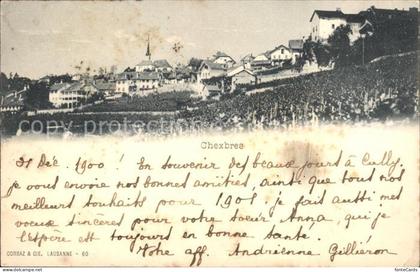 Chexbres
31 Déc. 1900! En souvenir des beaux jours à Cully.
je vous envoie nos bonnes amitiés, ainsi que tous nos
meilleurs souhaits pour 1901. je fais aussi mes
voeux sincères pour votre soeur Anna, qui je
l'espère est toujours en bonne santé.
Votre aff. Andrienne Gilliéron
CORBAZ & CIE., LAUSANNE - 60
copyright delcampe.net